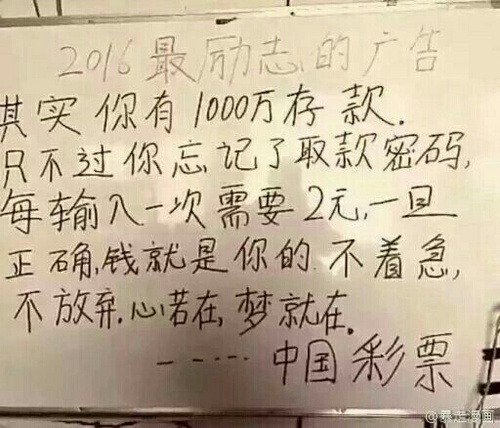 2016最励志的广告
其实你有1000万存款.
只不过你忘记了取款密码,
每输入一次需要2元,一旦
正确,钱就是你的.不着急,
不放弃.心若在,梦就在.
-----中国彩票
@暴走漫画